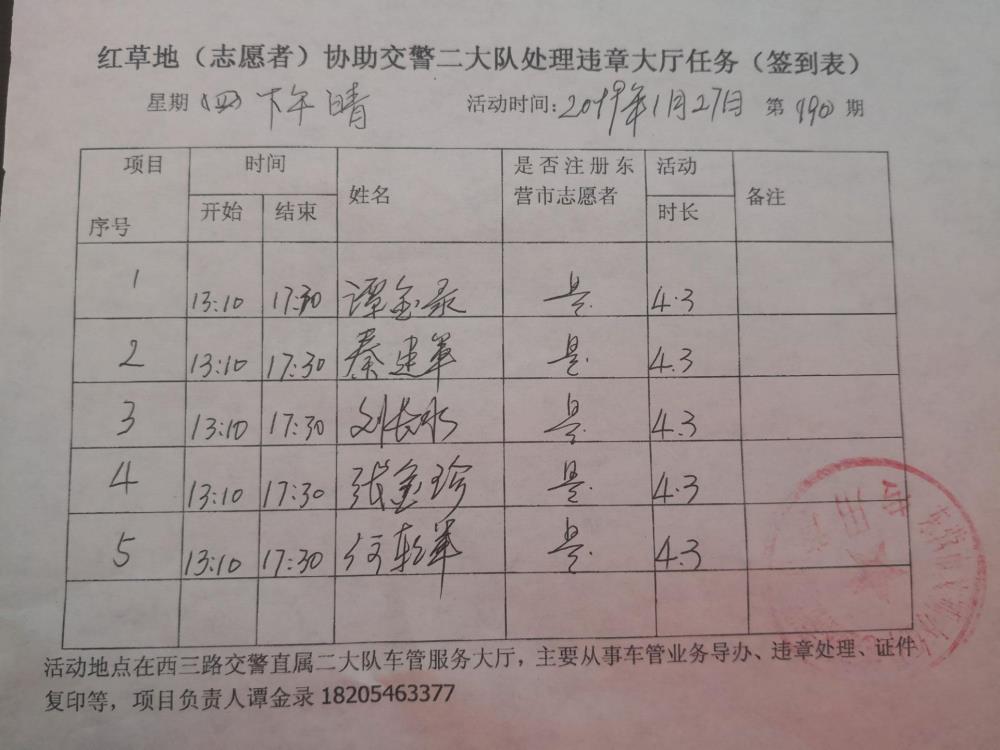 红草地（志愿者）协助交警二大队处理违章大厅任务（签到表）
星期（四）下午 晴 活动时间：2019年1月27日 第（190）期
项目 时间 姓名 是否注册东 活动 备注
营市志愿者
序号 开始 结束 时长
1 13:10 17:30 谭金录 是. 4.3
2 13:10 17:30 秦建军 是. 4.3
3 13:10 17:30 刘长水 是. 4.3
4 13:10 17:30 张金珍 是. 4.3
5 13:10 17:30 军 是. 4.3
活动地点在西三路交警直属二大队车管服务大厅，主要从事车管业务导办、违章处理、证件
复印等，项目负责人谭金录 18205463377